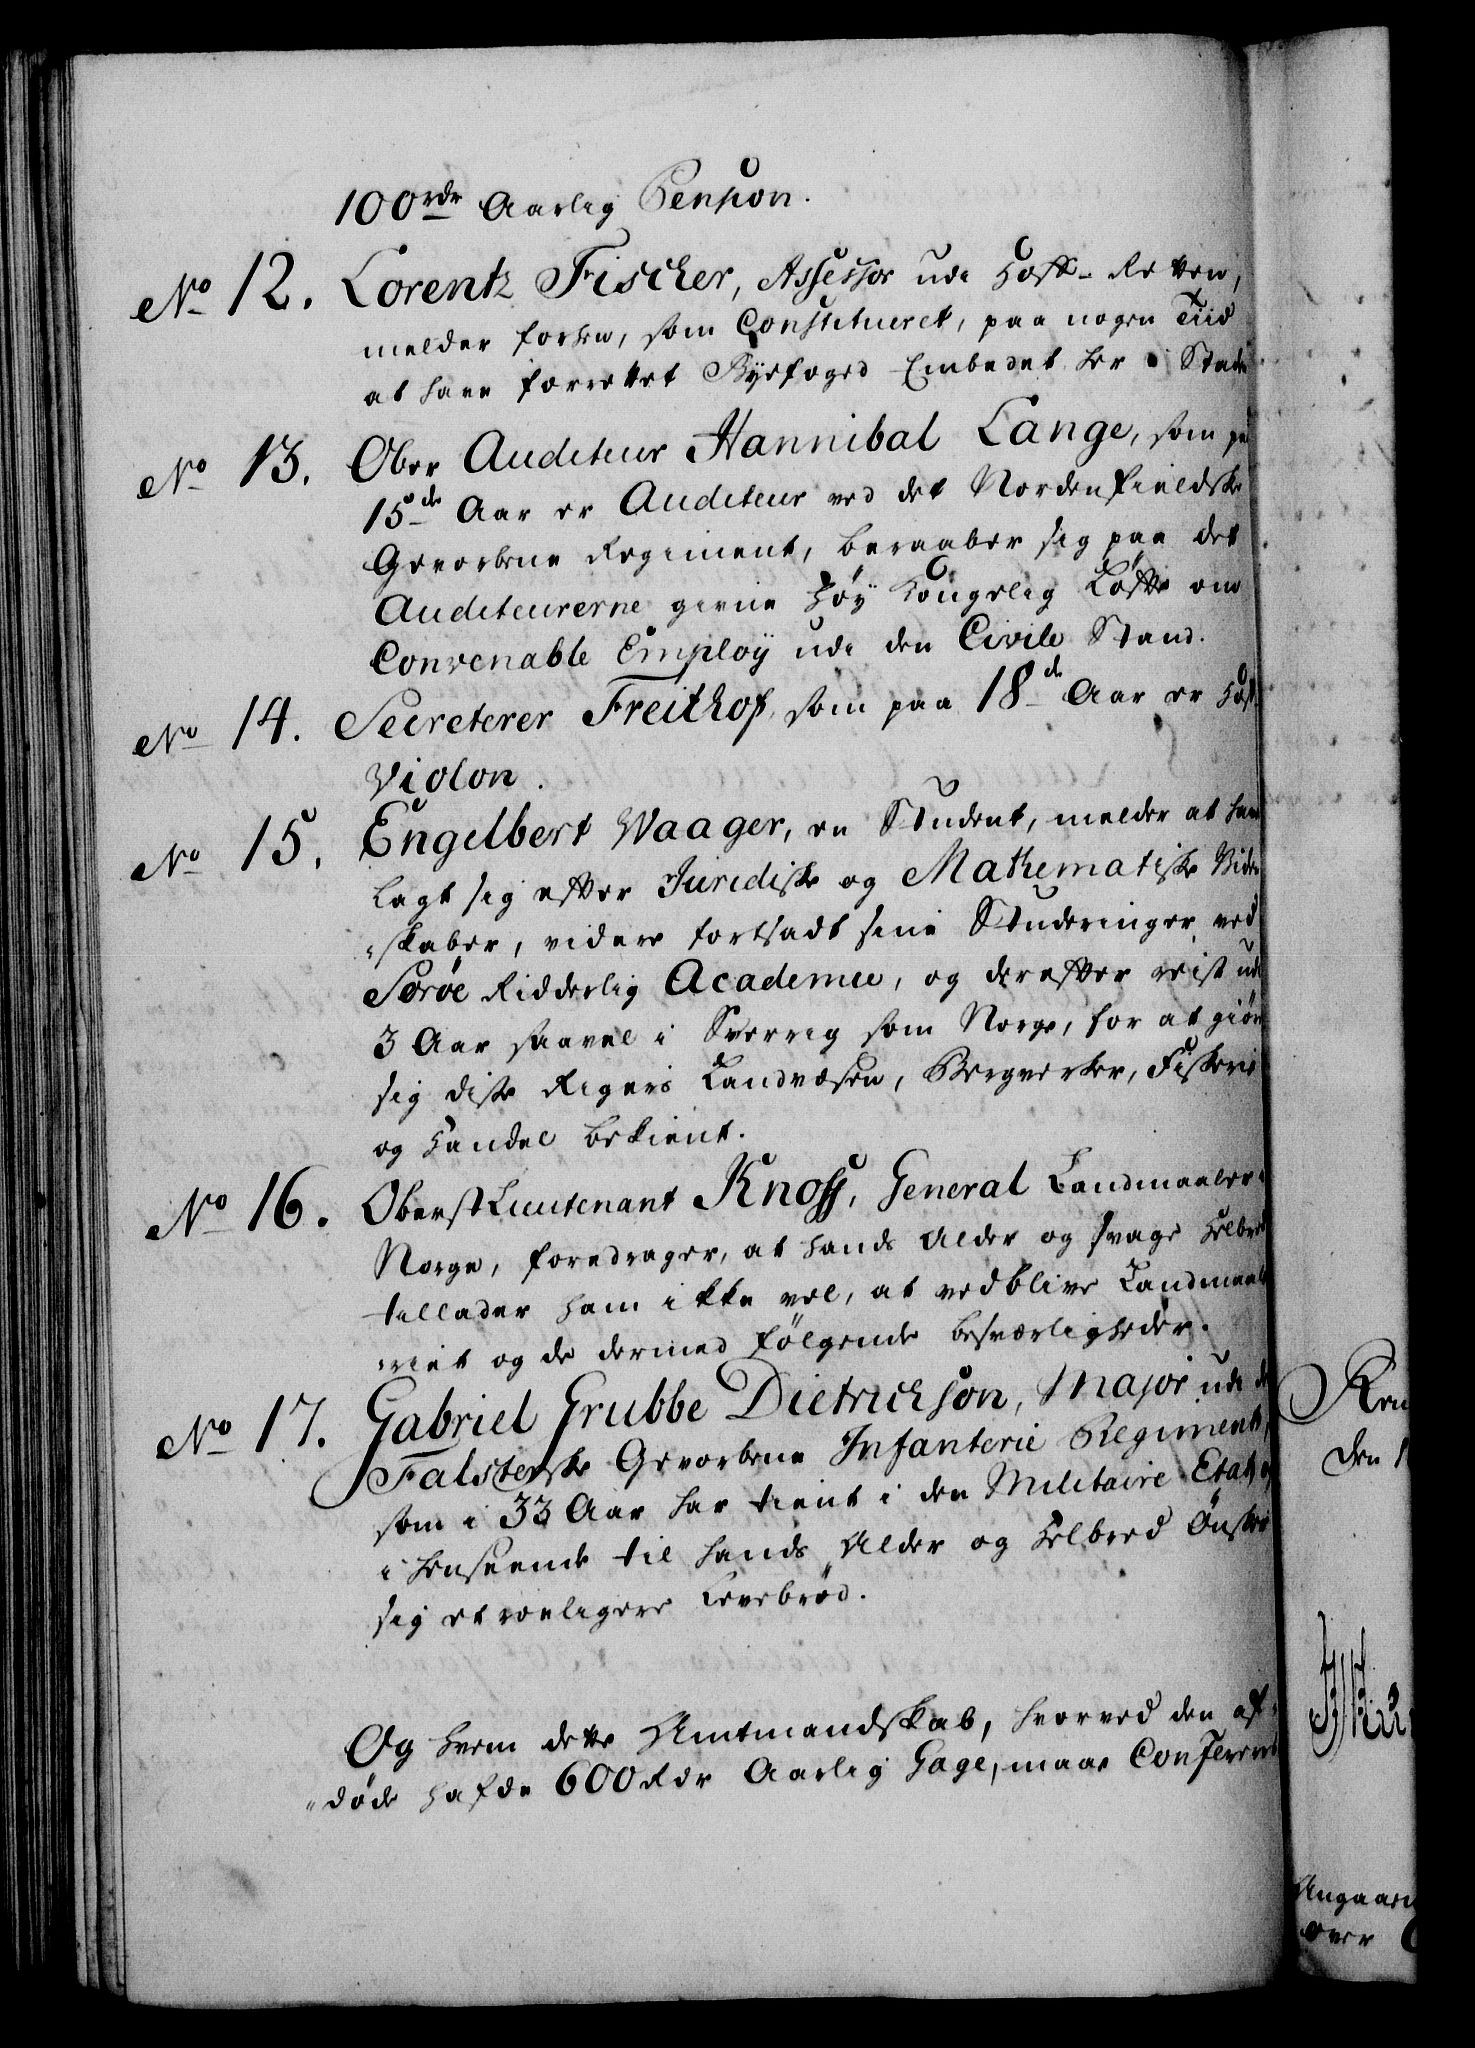 100 rdr Aarlig Pension.
No 12. Lorentz Fischer, Assessor udi Hoff-Retten,
melder forhen, som Constitueret, paa nogen Tiid
at have forrettet Byefoged Embedet her i Staden
No 13. Ober Auditeur Hannibal Lange, som paa
15de Aar er Auditeur ved det Nordenfieldske
Gevorbene Regiment, beraaber sig paa det
Auditeurerne givne høy Kongelig Løfte om
Convenable Employ udi den Civile Stand.
No 14. Secreterer Freithof, som paa 18de Aar er Hof-
Violon.
No 15. Engelbert Waager, en Student, melder at have
lagt sig efter Juridiske og Mathematiske Viden
skaber, videre fortsadt sine Studeringer ved
Sorøe Ridderlig Academie, og derefter reist udi
3 Aar saavel i Sverrig som Norge, for at giøre
sig diste Rigers Landvæsen, Bergverker, Fiskerie
og Handel bekient.
No 16. Oberst Lieutenant Knoff, General Landmaaler i
Norge, foredrager, at hands Alder og svage Helbred
tillader ham ikke vel, at vedblive Landmaale
riet og de dermed følgende besværligheder.
No 17. Gabriel Grubbe Dietrichson, Major udi det
Falsterske Gevorbene Infanterie Regiment,
som i 33 Aar har tient i den Militaire Etat, og
i henseende til hands Alder og Helbred Ønsker
sig et roeligere Levebrød.
Og hvem dette Amtmandskab, hvorved den af-
døde hafde 600 Rdr Aarlig Gage, maae Conferers
Den
Angaaen
over